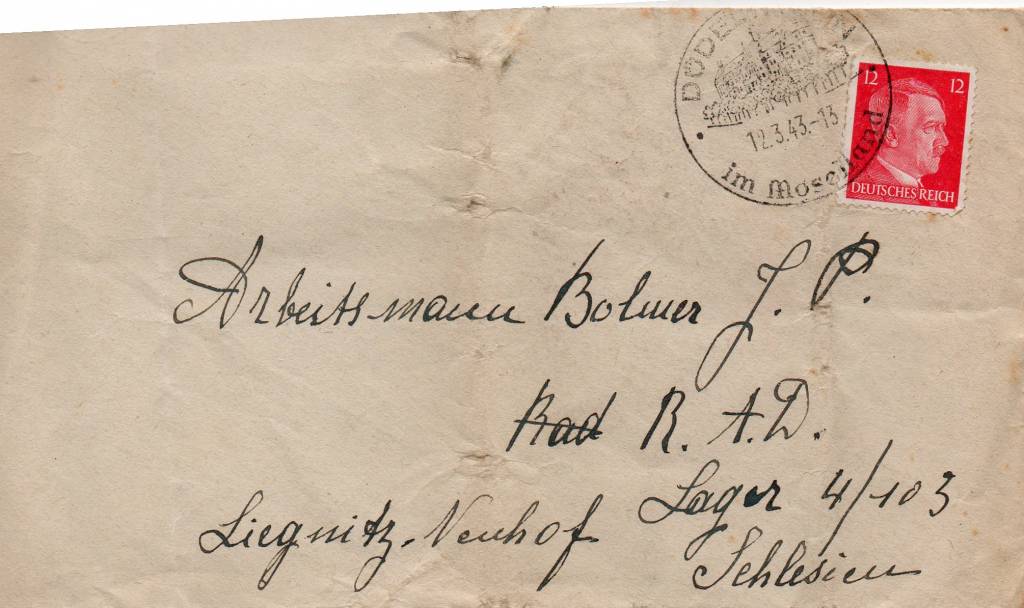 im Moselland
12.3.43.-13
12 12
DEUTSCHES REICH
Arbeitsmann Bolmer J. P.
Rad R. A. D.
Lager 4/103
Liegnitz-Neuhof
Schlesien